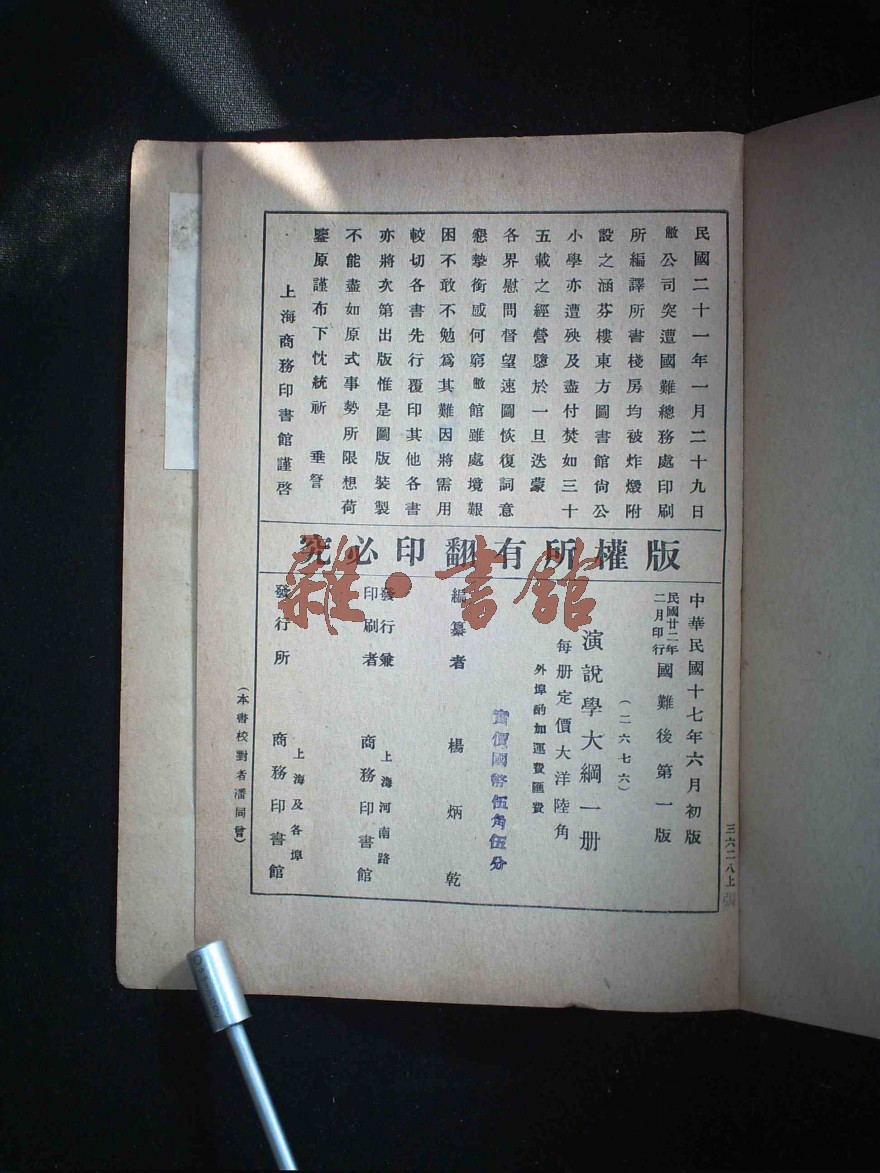 民國二十一年一月二十九日
敝公司突遭國難總務處印刷
所編譯所書棧房均被炸燬附
設之涵芬樓東方圖書館尙公
小學亦遭殃及盡付焚如三十
五載之經營隳於一旦迭蒙
各界慰問督望速圖恢復詞意
懇摯銜感何窮敝館雖處境艱
困不敢不勉爲其難因將需用
較切各書先行覆印其他各書
亦將次第出版惟是圖版裝製
不能盡如原式事勢所限想荷
鑒原謹布下忱統祈 垂詧
上海商務印書館謹啓
版權所有翻印必究
中華民國十七年六月初版
民國廿二年二月印行 國難後第一版
(二六七六)
演說學大綱一册
每册定價大洋陸角
外埠酌加運費匯費
實價國幣伍角伍分
編纂者 楊炳乾
發行兼印刷者 上海河南路 商務印書館
發行所 上海及各埠 商務印書館
(本書校對者潘同曾)
三六二八上
雜·書館